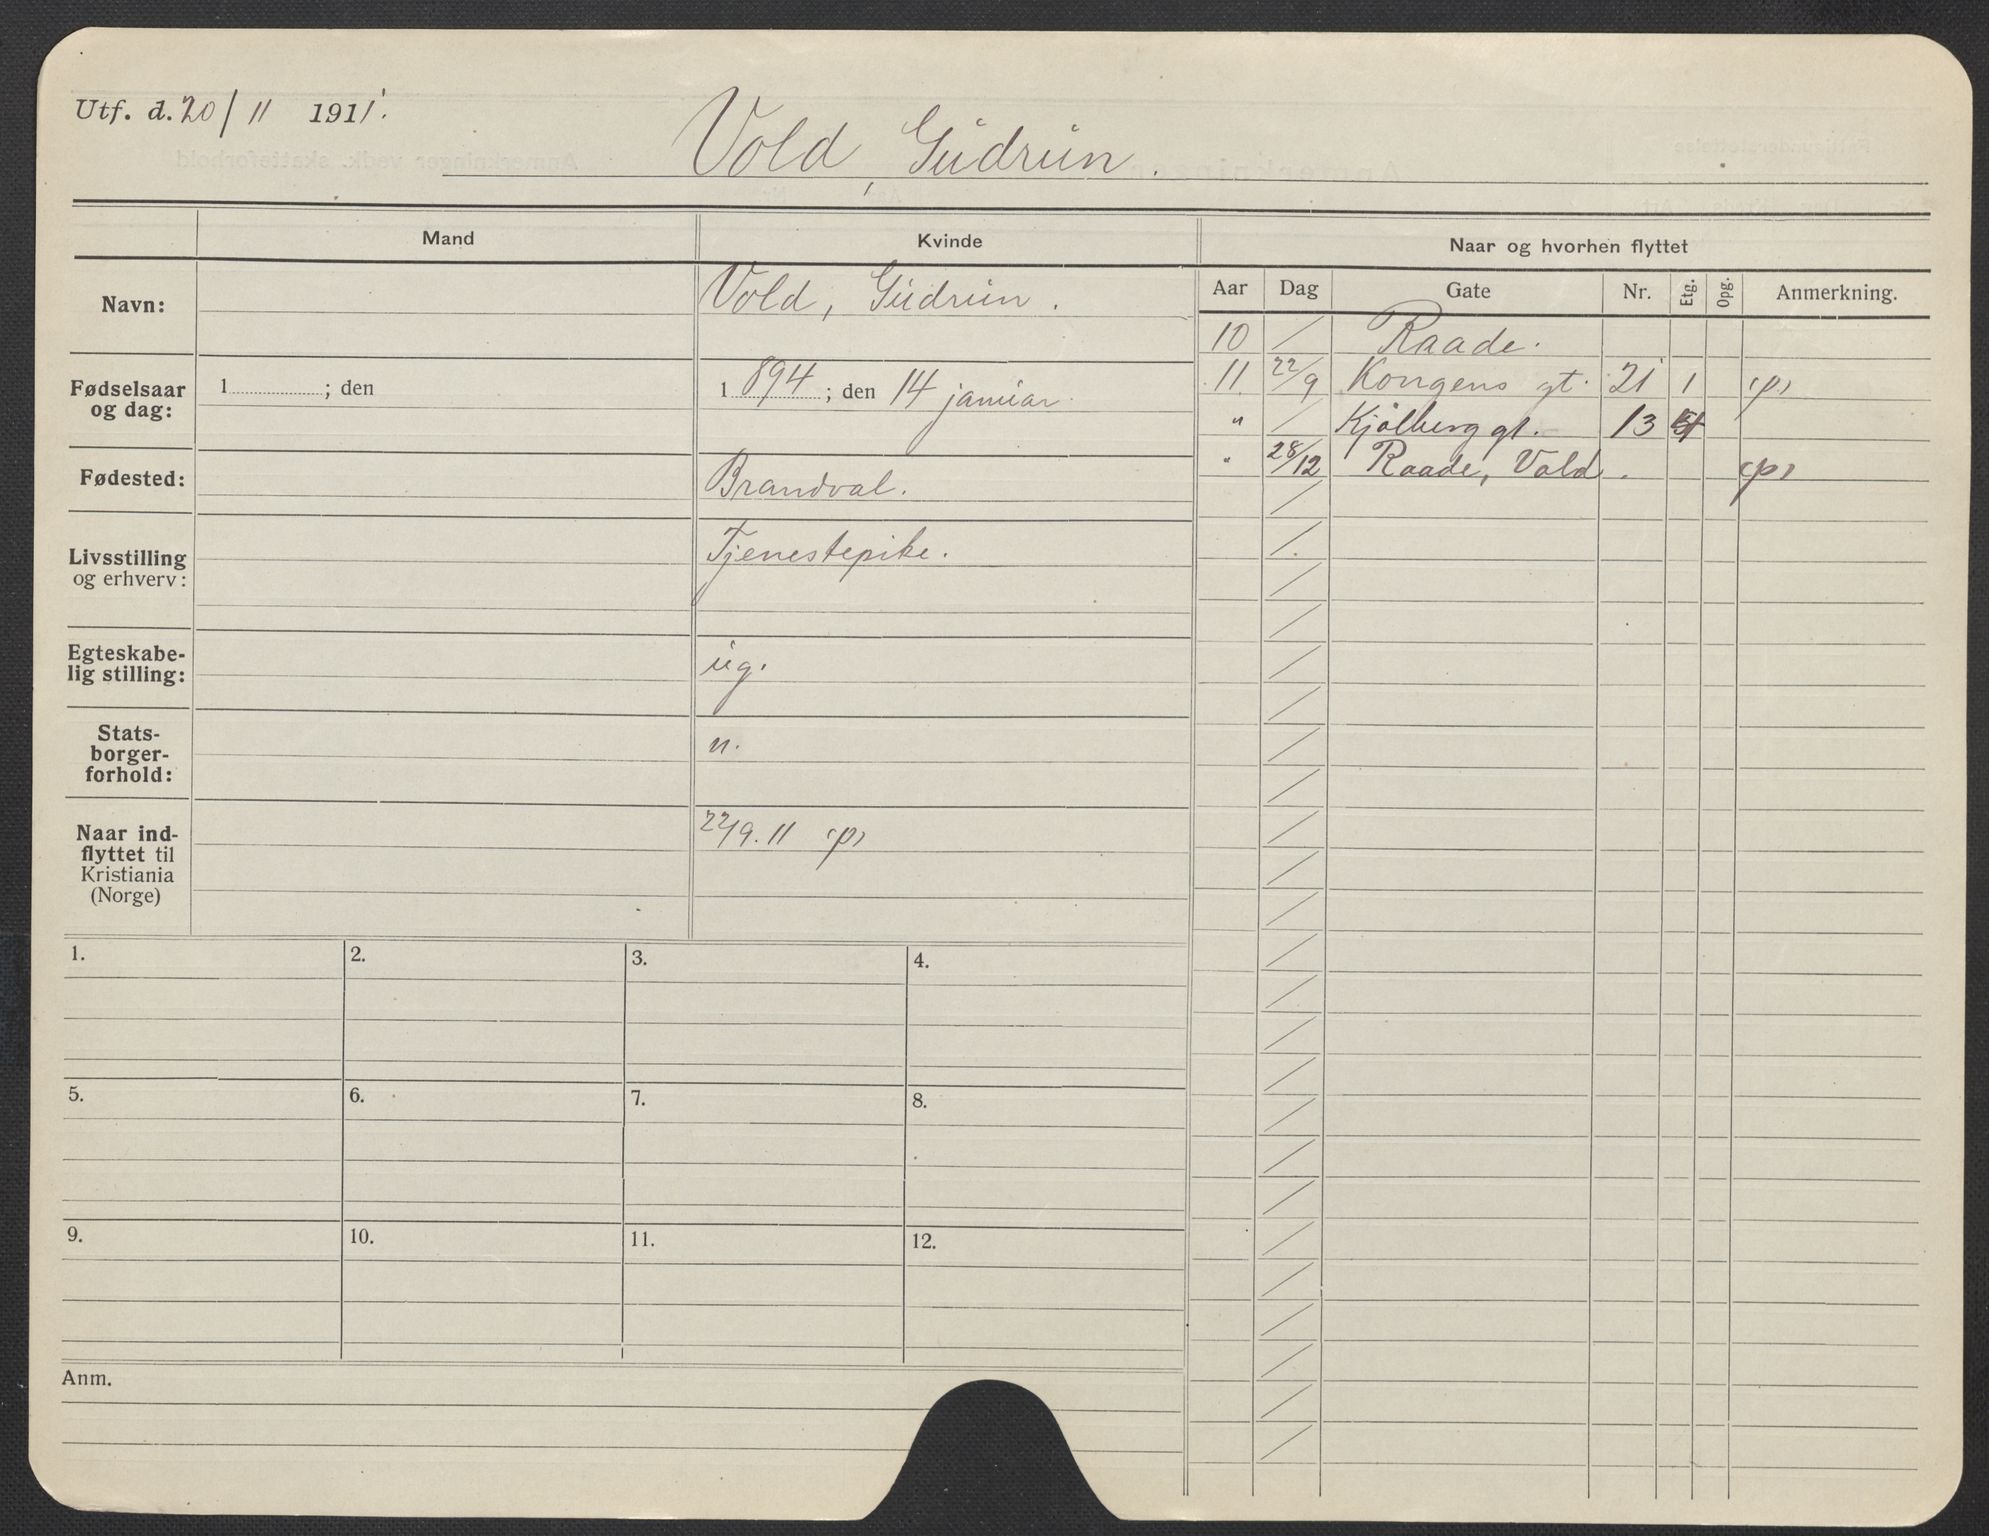 Utf. d. 20/11 1911.
Vold, Gudrun.
Mand
Kvinde
Naar og hvorhen flyttet
Aar Dag Gate Nr. Etg. Opg. Anmerkning.
Navn:
Vold, Gudrun.
Fødselsaar
og dag:
1 ; den
1 894 ; den 14 januar
Fødested:
Brandval.
Livsstilling
og erhverv:
Tjenestepike.
Egteskabe-
lig stilling:
ug.
Stats-
borger-
forhold:
n.
Naar ind-
flyttet til
Kristiania
(Norge)
22/9. 11 (p)
10 / Raade.
11. 22/9 Kongens gt. 21 1 (p)
" / Kjølberg gt. 13
" 28/12 Raade, Vold. (p)
1.
2.
3.
4.
5.
6.
7.
8.
9.
10.
11.
12.
Anm.